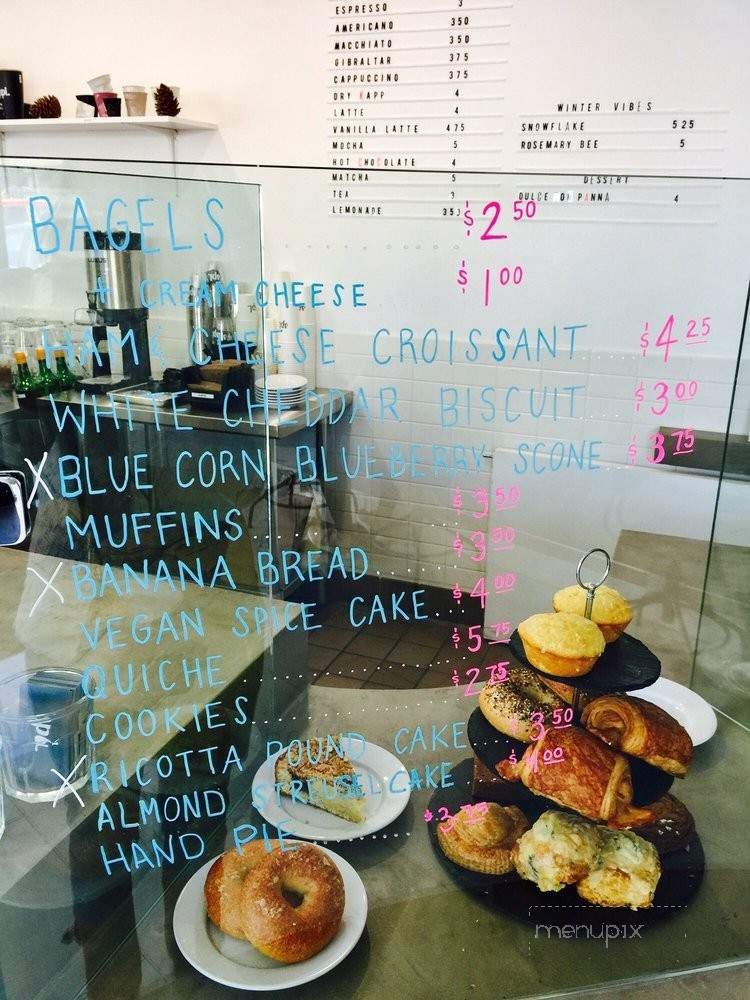 ESPRESSO 3
AMERICANO 350
MACCHIATO 350
GIBRALTAR 375
CAPPUCCINO 375
DRY KAPP 4
LATTE 4
VANILLA LATTE 475
MOCHA 5
HOT CHOCOLATE 4
MATCHA 5
TEA 3
LEMONADE 350
WINTER VIBES
SNOWFLAKE 525
ROSEMARY BEE 5
DESSERT
DULCE PANNA 4
BAGELS $2 50
+ CREAM CHEESE $1 00
HAM & CHEESE CROISSANT $4 25
WHITE CHEDDAR BISCUIT $3 00
X BLUE CORN BLUEBERRY SCONE $3 75
MUFFINS $3 50
X BANANA BREAD $3 50
VEGAN SPICE CAKE $4 00
QUICHE $5 75
COOKIES $2 75
X RICOTTA POUND CAKE $3 50
ALMOND STREUSEL CAKE $4 00
HAND PIE $3 75
menupix